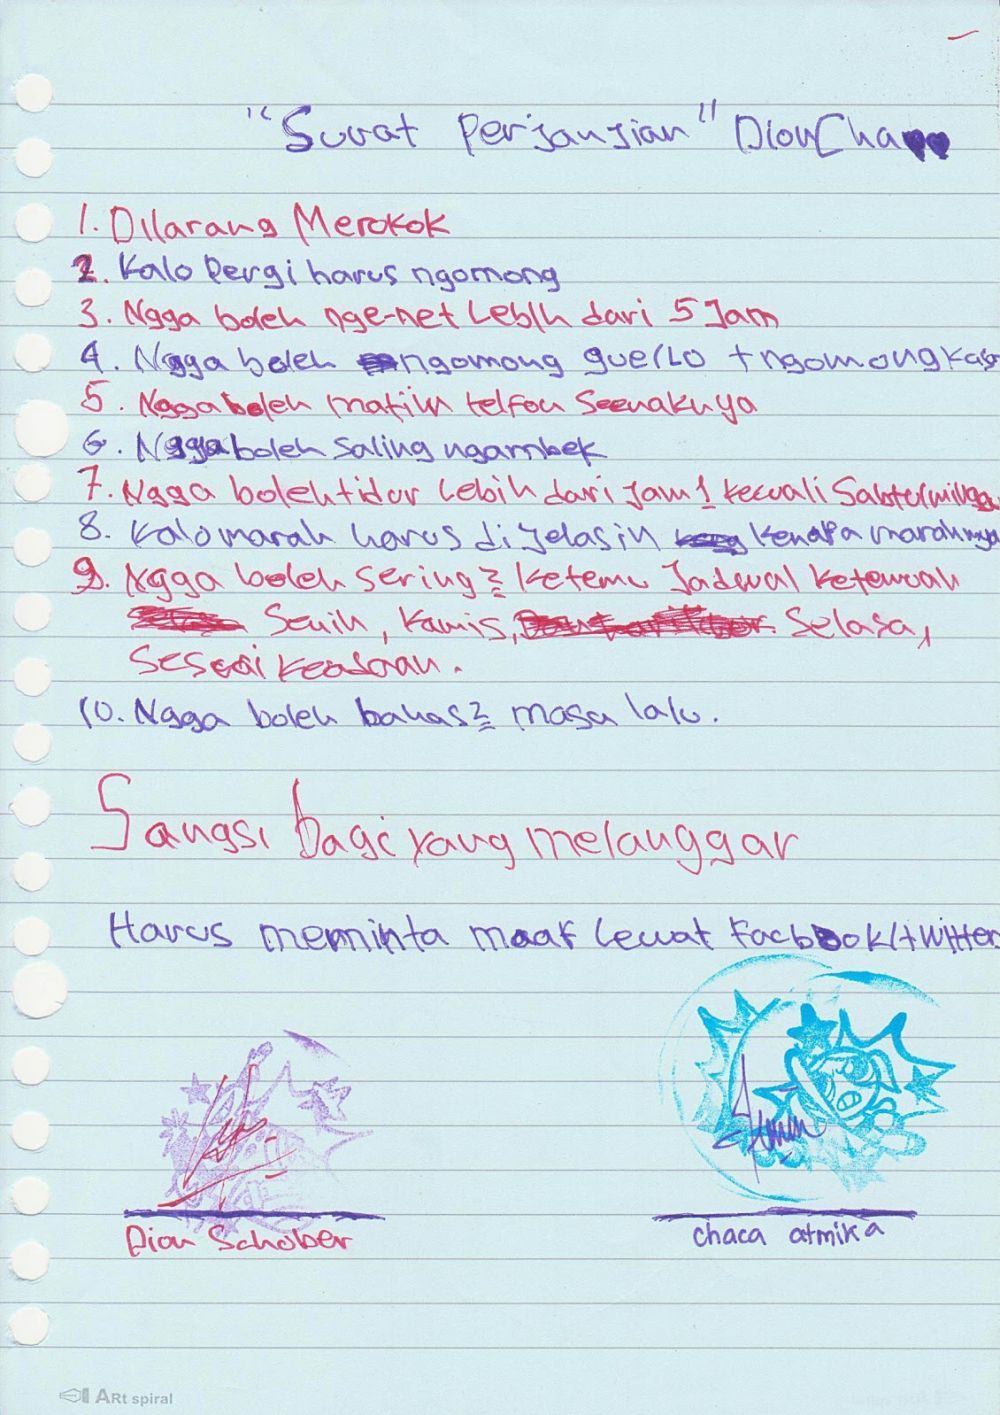 "Surat Perjanjian" DionCha
1. Dilarang Merokok
2. Kalo Pergi harus ngomong
3. Ngga boleh nge-net Lebih dari 5 Jam
4. Ngga boleh ngomong gue/Lo + ngomong
5. Ngga boleh matiin telfon Seenaknya
6. Ngga boleh Saling ngambek
7. Ngga boleh tidur Lebih dari jam 1 kecuali Sabtu/minggu
8. Kalo marah harus di jelasin kenapa marahnya
9. Ngga boleh Sering2 Ketemu Jadwal Ketemuan
Senin, Kamis, Selasa,
Sesuai Keadaan.
10. Ngga boleh bahas2 masa lalu.
Sangsi bagi yang melanggar
Harus meminta maaf lewat Facbook/twitter
Dion Schober
chaca atmika
ARt spiral